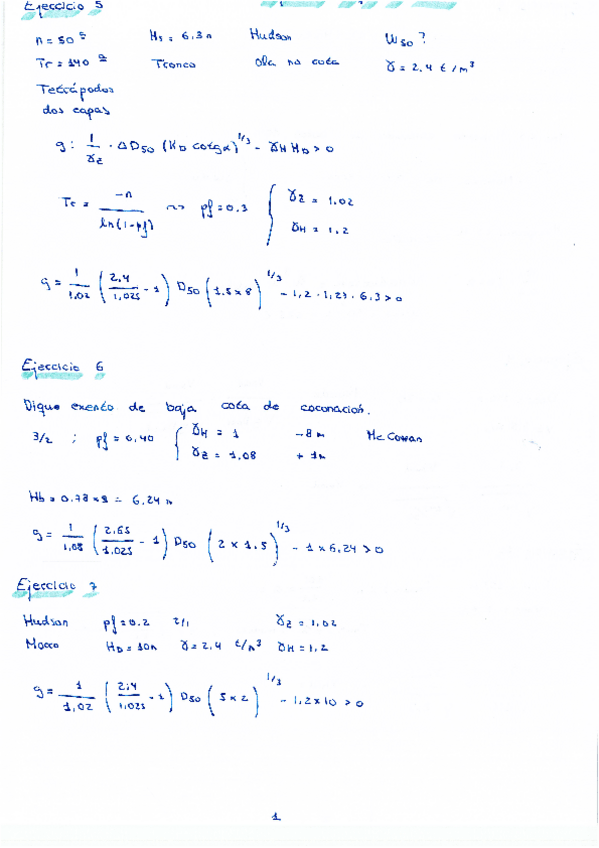 Ejercicio 5
n = 50 ª Hs = 6,3 m Hudson W50 ?
Tr = 140 ª Tronco Ola no rota γ = 2,4 t/m³
Tetrápodos
dos capas
g: 1/γz · ΔD50 (KD cotgα)^1/3 - γH HD > 0
Tr = -n / ln(1-pf) ~> pf = 0.3 { γz = 1.02
γH = 1.2
g = 1/1,02 (2,4/1,025 - 1) D50 (1.5 x 8)^1/3 - 1,2 · 1,27 · 6.3 > 0
Ejercicio 6
Dique exento de baja cota de coronación.
3/2 ; pf = 0,40 { γH = 1 -8 m Mc Cowan
γz = 1,08 + 1m
Hb = 0.78 x 8 = 6,24 m
g = 1/1,08 (2,65/1,025 - 1) D50 (2 x 1.5)^1/3 - 1 x 6,24 > 0
Ejercicio 7
Hudson pf = 0.2 2/1 γz = 1,02
Morro HD = 10m γ = 2.4 t/m³ γH = 1,2
g = 1/1,02 (2,4/1,025 - 1) D50 (5 x 2)^1/3 - 1,2 x 10 > 0
1